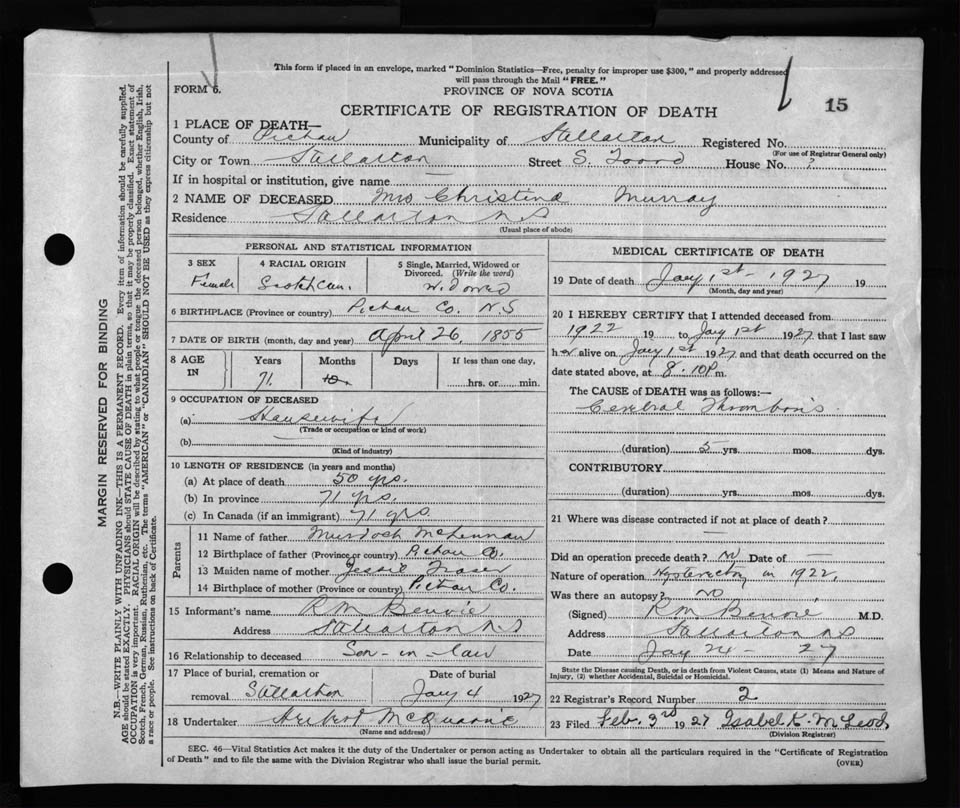 This form if placed in an envelope, marked "Dominion Statistics—Free, penalty for improper use $300," and properly addressed
will pass through the Mail "FREE."
FORM 6.
PROVINCE OF NOVA SCOTIA
CERTIFICATE OF REGISTRATION OF DEATH
15
1 PLACE OF DEATH—
County of Pictou Municipality of Stellarton Registered No.
(For use of Registrar General only)
City or Town Stellarton Street S. Foord House No. ?
If in hospital or institution, give name —
2 NAME OF DECEASED Mrs Christina Murray
Residence Stellarton N.S
(Usual place of abode)
PERSONAL AND STATISTICAL INFORMATION
3 SEX
Female
4 RACIAL ORIGIN
Scotch
5 Single, Married, Widowed or
Divorced. (Write the word)
Widowed
6 BIRTHPLACE (Province or country) Pictou Co. N.S
7 DATE OF BIRTH (month, day and year) April 26, 1855
8 AGE
IN
Years
71
Months
10
Days
If less than one day,
hrs. or min.
9 OCCUPATION OF DECEASED
(a) Housewife
(Trade or occupation or kind of work)
(b)
(Kind of industry)
10 LENGTH OF RESIDENCE (in years and months)
(a) At place of death 50 yrs.
(b) In province 71 yrs.
(c) In Canada (if an immigrant) 71 yrs
Parents
11 Name of father Murdoch McLennan
12 Birthplace of father (Province or country) Pictou Co.
13 Maiden name of mother Jessie Fraser
14 Birthplace of mother (Province or country) Pictou Co.
15 Informant's name R M Benvie
Address Stellarton N.S
16 Relationship to deceased Son-in-law
17 Place of burial, cremation or
removal Stellarton
Date of burial
Jany 4 1927
18 Undertaker McQuarrie
(Name and address)
MEDICAL CERTIFICATE OF DEATH
19 Date of death Jany 1st - 1927 19
(Month, day and year)
20 I HEREBY CERTIFY that I attended deceased from
1922 19 to Jany 1st 1927 that I last saw
her alive on Jany 1st 1927 and that death occurred on the
date stated above, at 8.10 P m.
The CAUSE of DEATH was as follows:—
Cerebral Thrombosis
(duration) 5 yrs. mos. dys.
CONTRIBUTORY
(duration) yrs. mos. dys.
21 Where was disease contracted if not at place of death?
—
Did an operation precede death? No Date of —
Nature of operation Hysterectomy in 1922.
Was there an autopsy? NO
(Signed) R M Benvie M.D.
Address Stellarton NS
Date Jany 24 - 27
State the Disease causing Death, or in death from Violent Causes, state (1) Means and Nature of
Injury, (2) whether Accidental, Suicidal or Homicidal.
22 Registrar's Record Number 2
23 Filed Feb. 3rd 1927 Isabel K. McLeod
(Division Registrar)
SEC. 46—Vital Statistics Act makes it the duty of the Undertaker or person acting as Undertaker to obtain all the particulars required in the "Certificate of Registration
of Death" and to file the same with the Division Registrar who shall issue the burial permit.
(OVER)
MARGIN RESERVED FOR BINDING
N.B.—WRITE PLAINLY WITH UNFADING INK—THIS IS A PERMANENT RECORD. Every item of information should be carefully supplied.
AGE should be stated EXACTLY. PHYSICIANS should STATE CAUSE OF DEATH in plain terms, so that it may be properly classified. Exact statement of
OCCUPATION is very important. RACIAL ORIGIN will be described by stating to what people or tongue the deceased person belonged, whether English, Irish,
Scotch, French, German, Russian, Ruthenian, etc. The terms "AMERICAN" or "CANADIAN" SHOULD NOT BE USED as they express citizenship but not
a race or people. See instructions on back of Certificate.